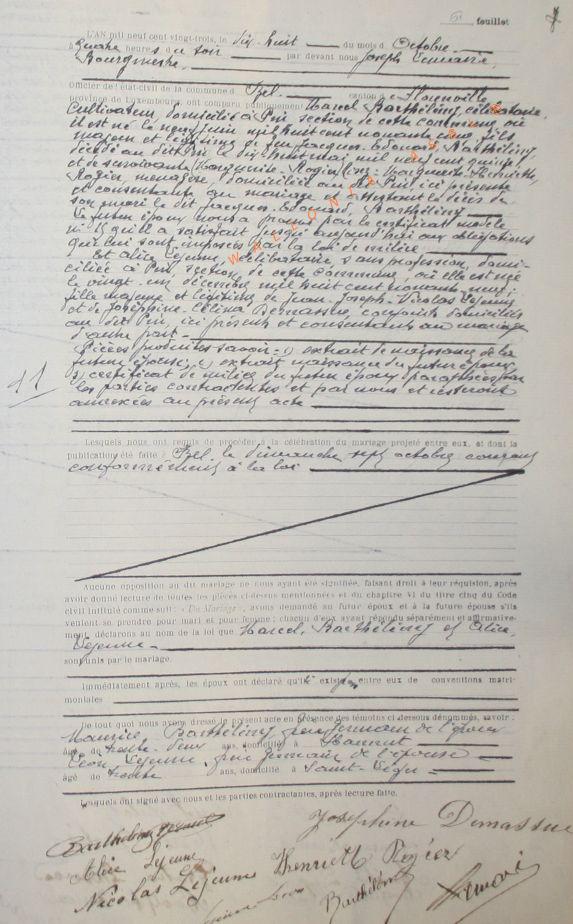 feuillet
L'AN mil neuf cent vingt-trois, le dix-huit du mois d'Octobre
à quatre heures du soir par devant nous Joseph Lemaire,
Bourgmestre
Officier de l'état-civil de la commune d'Izel canton de Florenville
province de Luxembourg ont comparu publiquement Marcel Barthélemy, célibataire,
cultivateur, domicilié à Pin section de cette commune où
il est né le neuf juin mil huit cent nonante cinq, fils
majeur et légitime de feu Jacques Edouard Barthélemy,
décédé au dit Pin le dix huit mai mil neuf cent quinze
et de survivante Marguerite Henriette
Rogier ménagère, domiciliée au dit Pin, ici présente
et consentante au mariage et attestant le décès de
son mari le dit Jacques Edouard Barthélemy
Le futur époux nous a prouvé par le certificat modèle
n° 15 qu'il a satisfait jusqu'aujourd'hui aux obligations
qui lui sont imposées par la loi de milice
Et Alice Lejeune, célibataire, sans profession, domi-
ciliée à Pin section de cette commune, où elle est née
le vingt un décembre mil huit cent nonante neuf,
fille majeure et légitime de Jean Joseph Nicolas Lejeune
et de Joséphine Célina Demasure, conjoints domiciliés
au dit Pin, ici présents et consentants au mariage
d'autre part
Pièces produites savoir: 1) extrait de naissance de la
future épouse; 2) extrait naissance du futur époux
3) certificat de milice du futur époux paraphées par
les parties contractantes et par nous et resteront
annexées au présent acte
41
Lesquels nous ont requis de procéder à la célébration du mariage projeté entre eux, et dont la
publication a été faite à Izel, le dimanche sept octobre courant
conformément à la loi
Aucune opposition au dit mariage ne nous ayant été signifiée, faisant droit à leur réquisition, après
avoir donné lecture de toutes les pièces ci-dessus mentionnées et du chapitre VI du titre cinq du Code
civil intitulé comme suit : « Du Mariage », avons demandé au futur époux et à la future épouse s'ils
veulent se prendre pour mari et pour femme ; chacun d'eux ayant répondu séparément et affirmative-
ment, déclarons au nom de la loi que Marcel Barthélemy et Alice
Lejeune
sont unis par le mariage.
Immédiatement après, les époux ont déclaré qu'il existe entre eux de conventions matri-
moniales
De tout quoi nous avons dressé le présent acte en présence des témoins ci-dessous dénommés, savoir :
Maurice Barthélemy, frère germain de l'époux
âgé de trente-deux ans, domicilié à Hannut
Léon Lejeune, frère germain de l'épouse
âgé de trente ans, domicilié à Saint-Léger
Lesquels ont signé avec nous et les parties contractantes, après lecture faite.
Joséphine Demasure
Alice Lejeune
Henriette Rogier
Nicolas Lejeune
Barthélemy
Lemaire